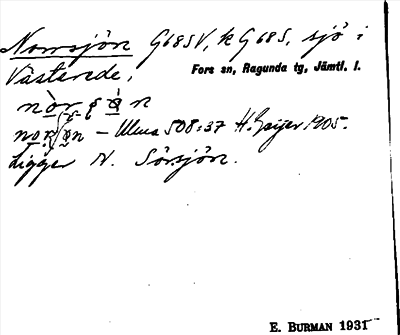 Norrsjön G68SV, k G68S, sjö i
Västerede,
Fors sn, Ragunda tg, Jämtl. l.
– Ulma 508:37 H. Geijer 1905.
Ligger N. Sörsjön.
E. BURMAN 1931